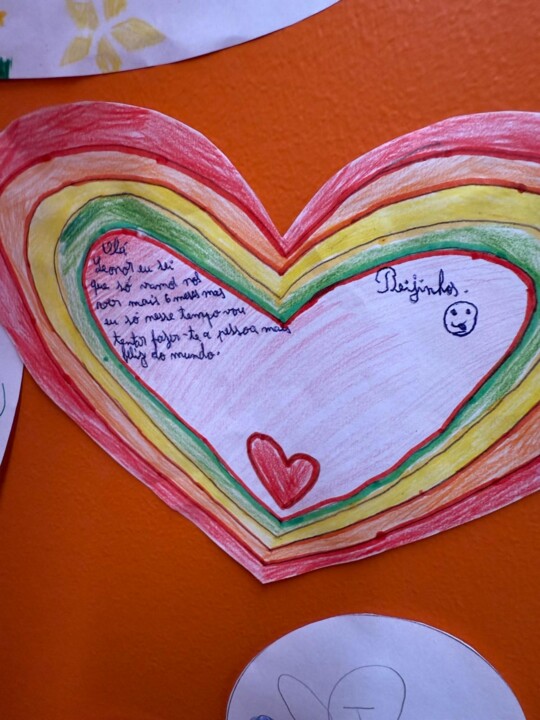 Olá
Leonor eu sei
que só vamos nos
ver mais 6 meses mas
eu só nesse tempo vou
tentar fazer-te a pessoa mais
feliz do mundo.
Beijinhos.